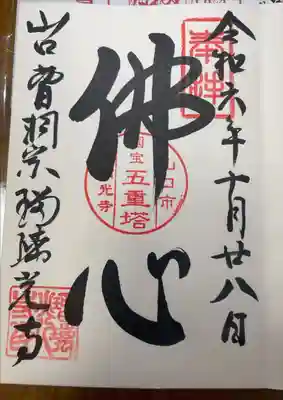 奉拝
令和六年十月廿八日
佛心
山口市
国宝
五重塔
光寺
山口曹洞宗瑠璃光寺